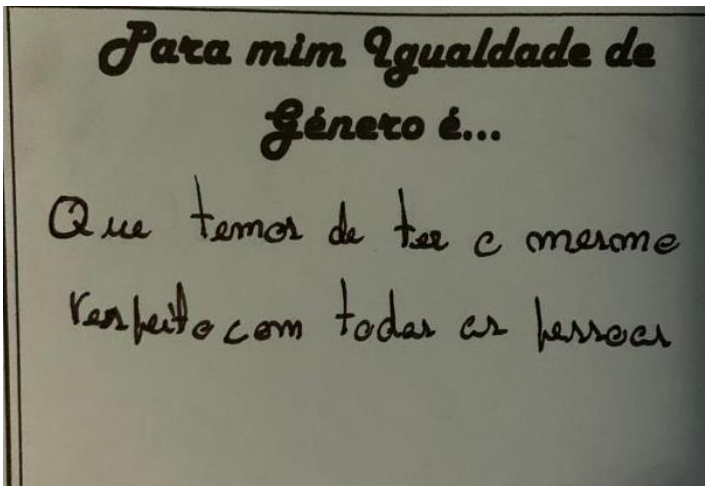 Para mim Igualdade de
Género é...
Que temos de ter o mesmo
respeito com todas as pessoas